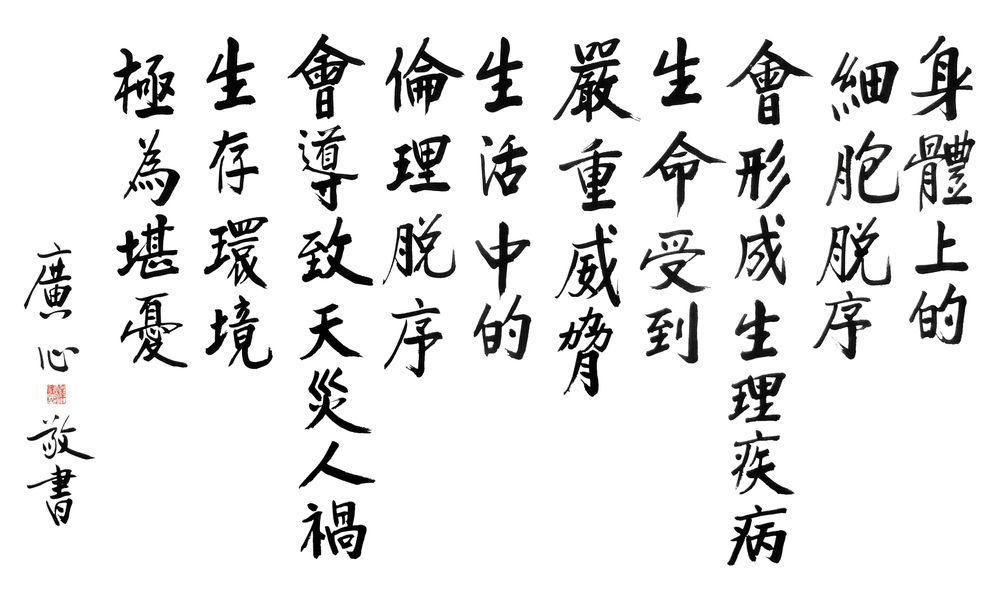 身體上的
細胞脫序
會形成生理疾病
生命受到
嚴重威脅
生活中的
倫理脫序
會導致天災人禍
生存環境
極為堪憂
廣心敬書